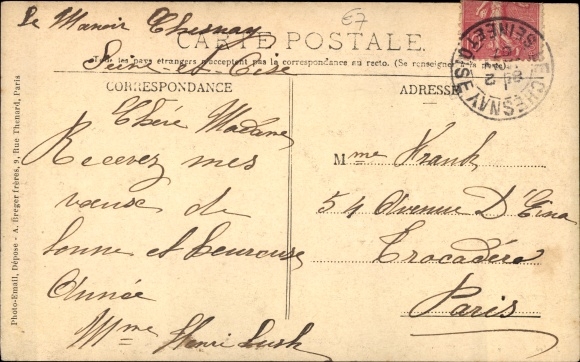 Le Manoir Chesnay
67
CARTE POSTALE
Tous les pays étrangers n'acceptent pas la correspondance au recto. (Se renseigner à la
Seine-et-Oise
CORRESPONDANCE
Chère Madame
Recevez mes
vœux de
bonne et heureuse
Année
Mme Henri Lush
ADRESSE
Mme Frank
54 Avenue D'Iéna
Trocadéro
Paris
LE CHESNAY
SEINE ET OISE
Photo-Email, Dépose - A. Breger frères, 9, Rue Thenard, Paris